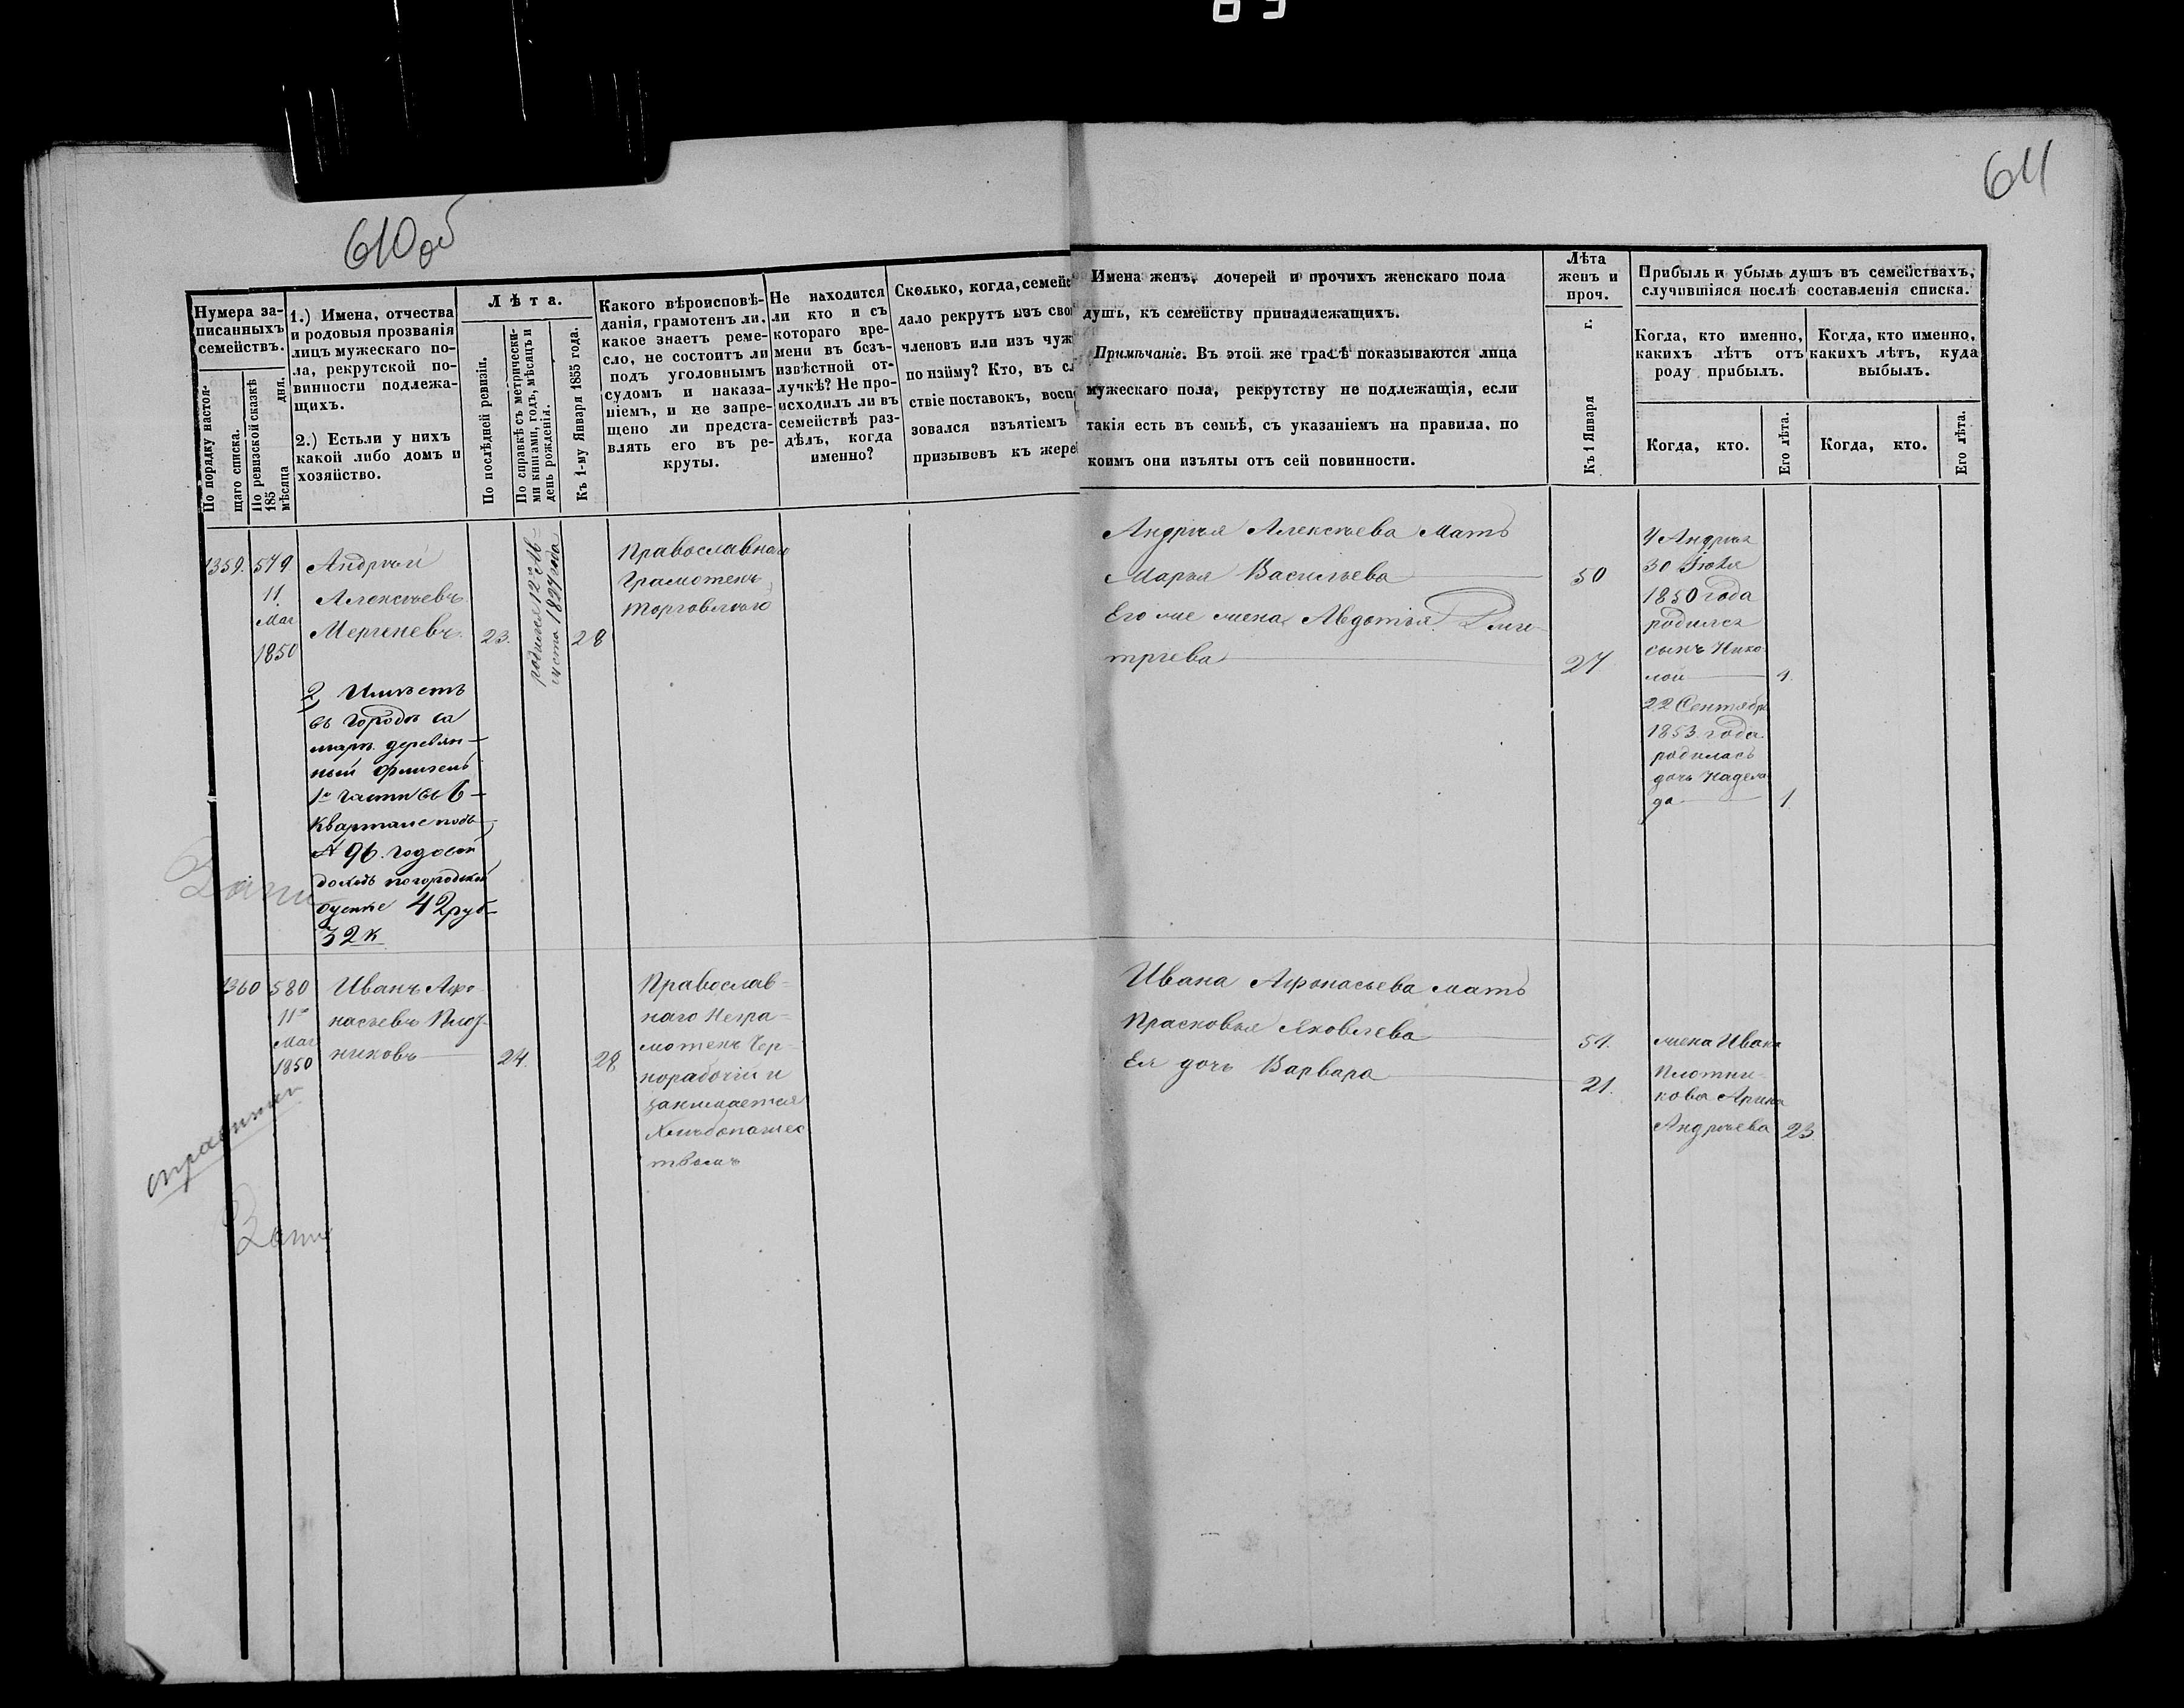 610 об
611
Нумера за-
писанныхъ
семействъ.
По порядку настоя-
щаго списка.
По ревизской сказкѣ
185
мѣсяца дня.
1.) Имена, отчества
и родовыя прозванія
лицъ мужескаго по-
ла, рекрутской по-
винности подлежа-
щихъ.
2.) Естьли у нихъ
какой либо домъ и
хозяйство.
Лѣта.
По послѣдней ревизіи.
По справкѣ съ метрически-
ми книгами, годъ, мѣсяцъ и
день рожденія.
Къ 1-му Января 1855 года.
Какого вѣроисповѣ-
данія, грамотенъ ли,
какое знаетъ реме-
сло, не состоитъ ли
подъ уголовнымъ
судомъ и наказа-
ніемъ, и не запре-
щено ли предста-
влять его въ ре-
круты.
Не находится
ли кто и съ
котораго вре-
мени въ безъ-
извѣстной от-
лучкѣ? Не про-
исходилъ ли въ
семействѣ раз-
дѣлъ, когда
именно?
Сколько, когда, семейс
дало рекрутъ изъ сво
членовъ или изъ чуж
по найму? Кто, въ сл
ствіе поставокъ, восп
зовался изъятіемъ
призывовъ къ жере
Имена женъ, дочерей и прочихъ женскаго пола
душъ, къ семейству принадлежащихъ.
Примѣчаніе. Въ этой же графѣ показываются лица
мужескаго пола, рекрутству не подлежащія, если
такія есть въ семьѣ, съ указаніемъ на правила, по
коимъ они изъяты отъ сей повинности.
Лѣта
женъ и
проч.
Къ 1 Января г.
Прибыль и убыль душъ въ семействахъ,
случившіяся послѣ составленія списка.
Когда, кто именно,
какихъ лѣтъ отъ
роду прибылъ.
Когда, кто именно,
какихъ лѣтъ, куда
выбылъ.
Когда, кто.
Его лѣта.
Когда, кто.
Его лѣта.
1359. 579
11.
Мая
1850
Андрѣй
Алексѣевъ
Мергеневъ. 23.
родился 12го Ав-
густа 1827 года
28
Православнаго
Грамотенъ
торговлею
2, Имѣетъ
въ городѣ Са
марѣ деревян-
ный флигель
1й части въ 6-
Кварталѣ подъ
№ 96. годовой
доходъ по городской
оценке 42 руб-
32 к
Андрѣя Алексѣева Мать
Марья Васильева 50
Его же жена Авдотья Дми-
тріева 27
У Андрея
30 Іюля
1850 года
родился
сынъ Нико
лай 4.
22 Сентября
1853 года.
родилась
дочь Надеж
да 1.
1360 580
11го
Мая
1850
Иванъ Афо-
насьевъ Плот-
никовъ 24. 28
Православ-
наго Негра-
мотенъ Чер-
норабочій и
занимается
Хлѣбопашес
твомъ
Ивана Афонасьева мать
Прасковья Яковлева 51.
Ея дочь Варвара 21.
жена Ивана
Плотни-
кова Арина
Андреева 23